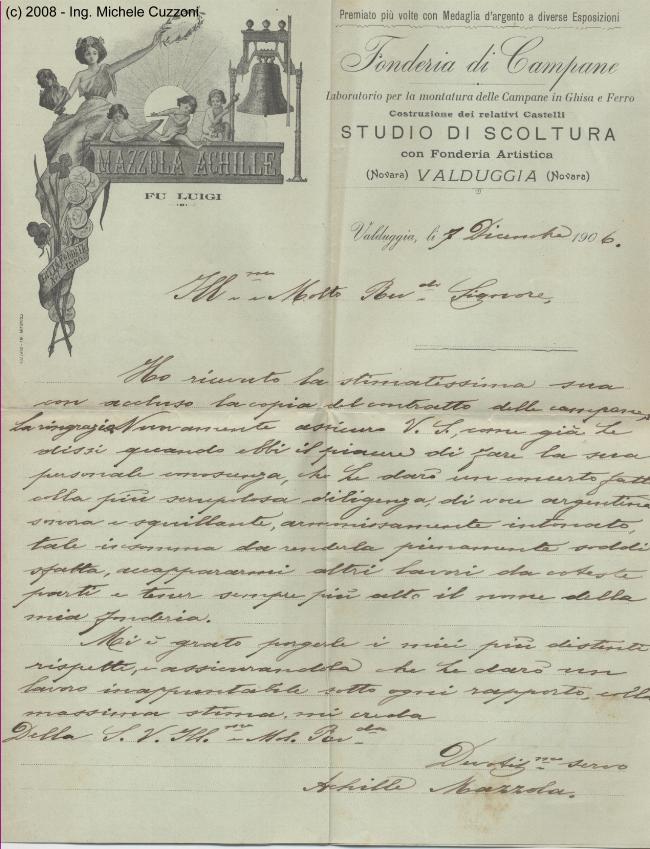 (c) 2008 - Ing. Michele Cuzzoni
Premiato più volte con Medaglia d'argento a diverse Esposizioni
Fonderia di Campane
Laboratorio per la montatura delle Campane in Ghisa e Ferro
Costruzione dei relativi Castelli
STUDIO DI SCOLTURA
con Fonderia Artistica
(Novara) VALDUGGIA (Novara)
MAZZOLA ACHILLE
FU LUIGI
Valduggia, li 7 Dicembre 1906.
Ill.mo e Molto Rev.do Signore,
Ho ricevuto la stimatissima sua
con accluso la copia del contratto delle campane,
La ringrazio. Nuovamente assicuro V. S., come già Le
dissi quando ebbi il piacere di fare la sua
personale conoscenza, che Le darò un concerto fatto
colla più scrupolosa diligenza, di voce argentina
sonora e squillante, armoniosamente intonato,
tale insomma da renderla pienamente soddi
sfatta, accappararmi altri lavori da coteste
parti e tener sempre più alto il nome della
mia fonderia.
Mi è grato porgerle i miei più distinti
rispetti, e assicurandola che Le darò un
lavoro inappuntabile sotto ogni rapporto, colla
massima stima, mi creda
Della S. V. Ill.ma e Mol. Rev.da
Devotis.mo servo
Achille Mazzola.